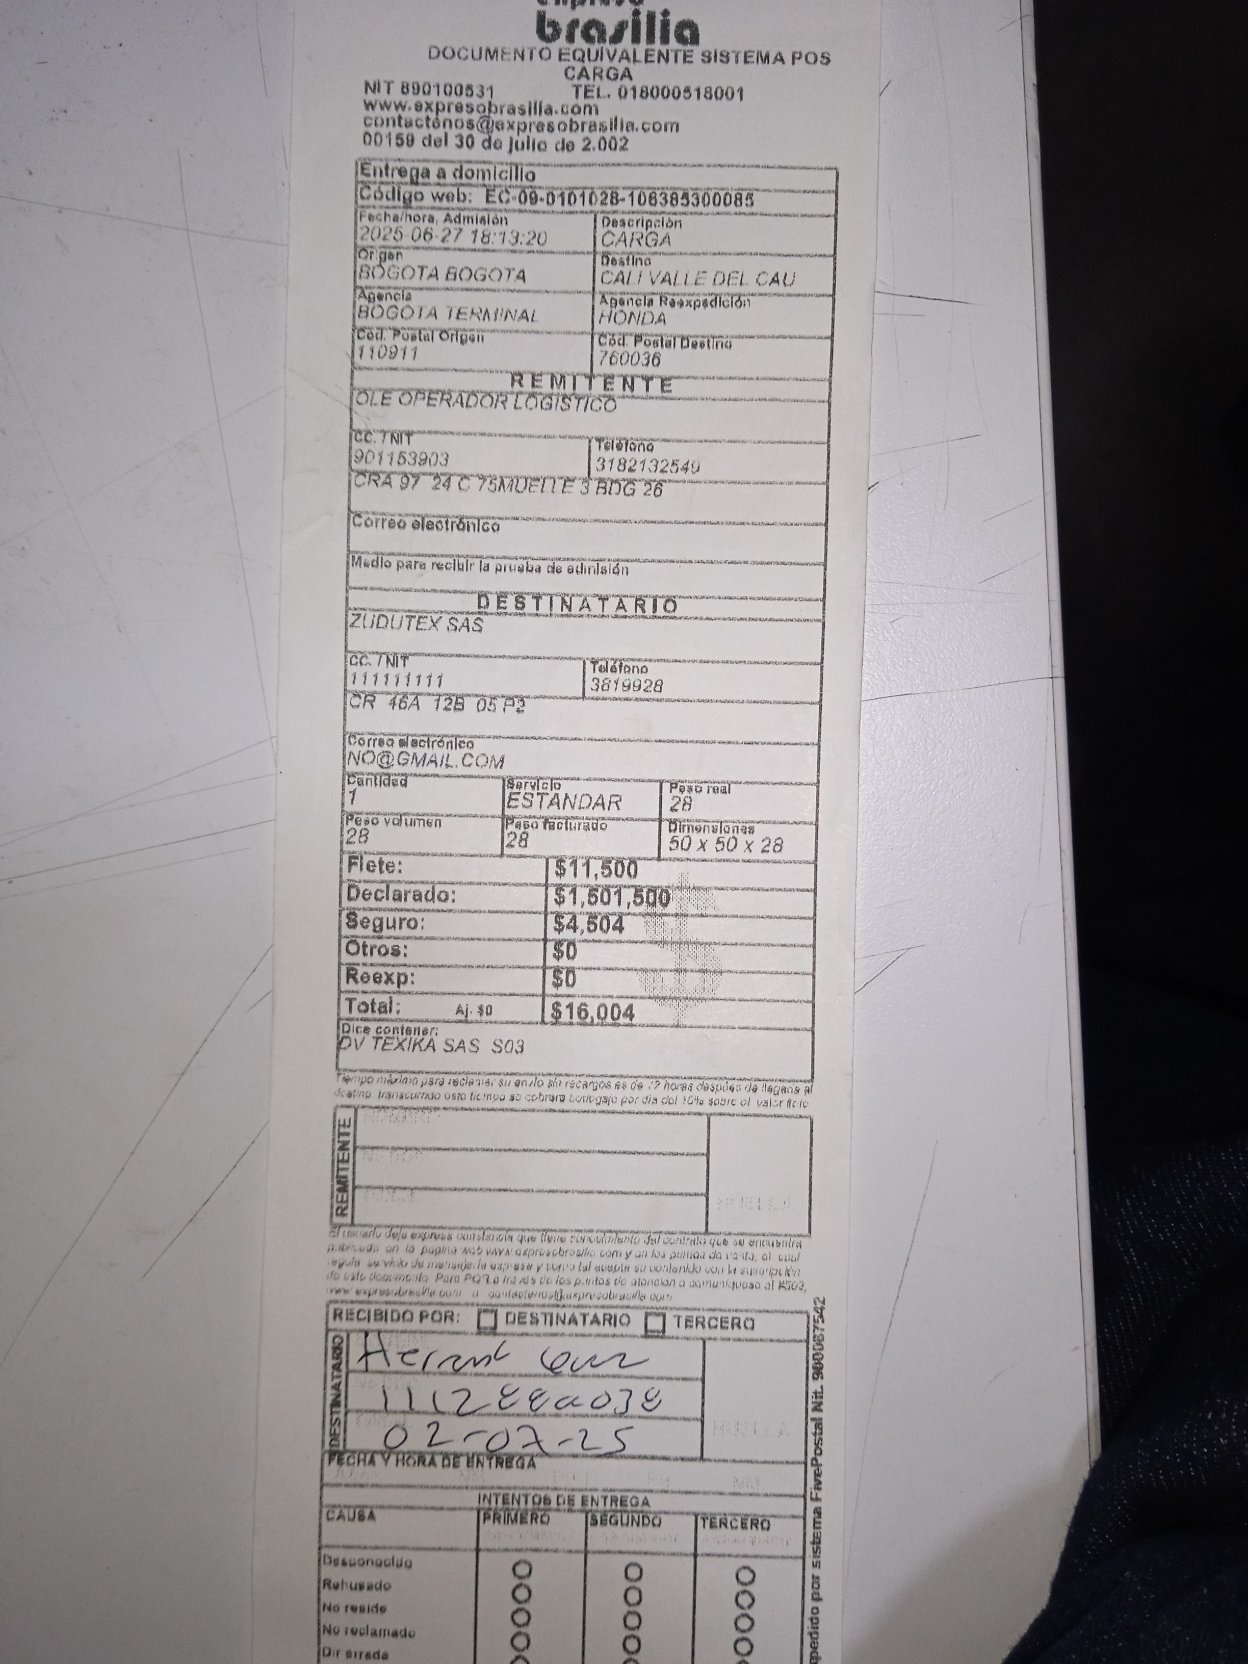 expreso
brasilia
DOCUMENTO EQUIVALENTE SISTEMA POS
CARGA
NIT 890100531 TEL. 018000518001
www.expresobrasilia.com
contactenos@expresobrasilia.com
00159 del 30 de julio de 2.002
Entrega a domicilio
Código web: EC-09-0101028-106385300085
Fecha/hora, Admisión Descripción
2025-06-27 18:13:20 CARGA
Origen Destino
BOGOTA BOGOTA CALI VALLE DEL CAU
Agencia Agencia Reexpedición:
BOGOTA TERMINAL HONDA
Cód. Postal Origen Cód. Postal Destino
110911 760036
REMITENTE
OLE OPERADOR LOGISTICO
CC. / NIT Teléfono
901153903 3182132549
CRA 97 24 C 75MUELLE 3 BDG 26
Correo electrónico
Medio para recibir la prueba de admisión
DESTINATARIO
ZUDUTEX SAS
CC. / NIT Teléfono
111111111 3819928
CR 46A 12B 05 P2
Correo electrónico
NO@GMAIL.COM
Cantidad Servicio Peso real
1 ESTANDAR 28
Peso volumen Peso facturado Dimensiones
28 28 50 x 50 x 28
Flete: $11,500
Declarado: $1,501,500
Seguro: $4,504
Otros: $0
Reexp: $0
Total: Aj. $0 $16,004
Dice contener:
DV TEXIKA SAS S03
Tiempo máximo para reclamar su envío sin recargos es de 72 horas después de llegana al
destino, transcurrido este tiempo se cobrara bodegaje por día del 10% sobre el valor flete
REMITENTE
El usuario deja expresa constancia que tiene conocimiento del contrato que se encuentra
publicado en la pagina web www.expresobrasilia.com y en los puntos de venta, el cual
regula servicio de mensajería expresa y como tal acepta su contenido con la suscripción
de este documento. Para PQR a través de los puntos de atención o comuníquese al #503,
www.expresobrasilia.com o contactenos@expresobrasilia.com
RECIBIDO POR: DESTINATARIO TERCERO
DESTINATARIO
02-07-25
FECHA Y HORA DE ENTREGA
INTENTOS DE ENTREGA
CAUSA PRIMERO SEGUNDO TERCERO
Desconocido
Rehusado
No reside
No reclamado
Dir errada
pedido por sistema FivePostal Nit. 900087542